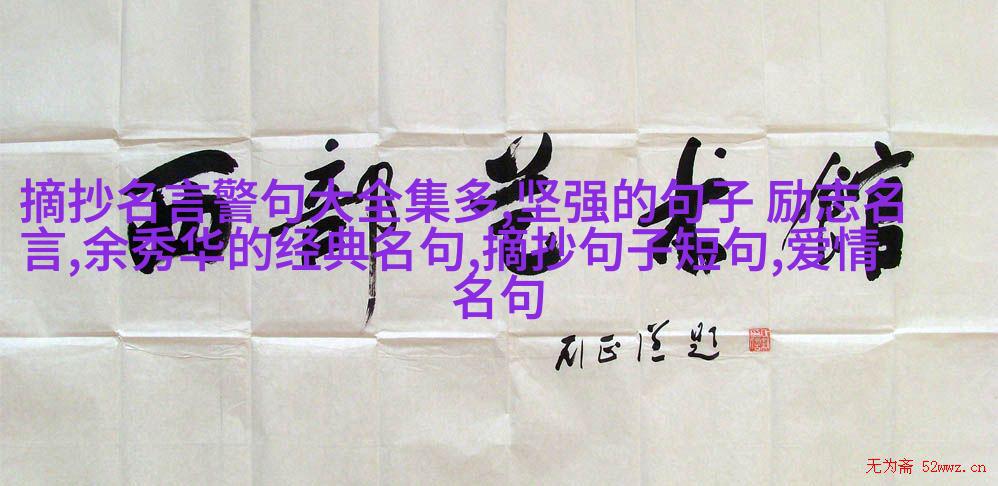 西部艺术馆
摘抄名言警句大全集多,坚强的句子 励志名
言,余秀华的经典名句,摘抄句子短句,爱情
名句
题
无为斋 52wwz.cn